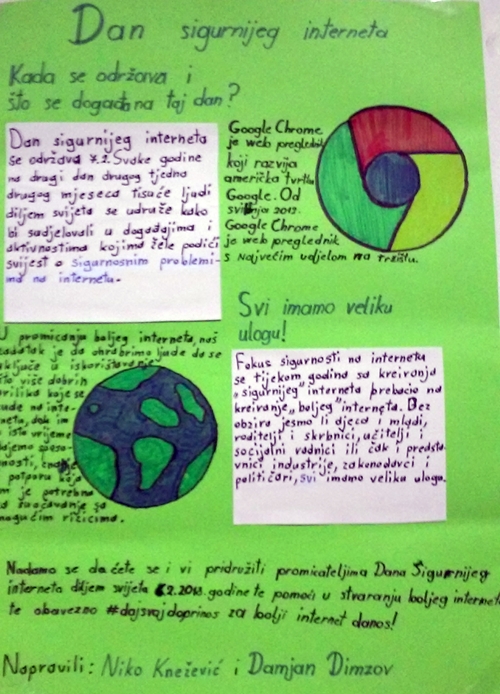 Dan sigurnijeg interneta
Kada se održava i
što se događa na taj dan?
Dan sigurnijeg interneta
se održava 7.2. Svake godine
na drugi dan drugog tjedna
drugog mjeseca tisuće ljudi
diljem svijeta se udruže kako
bi sudjelovali u događajima i
aktivnostima kojima žele podići
svijest o sigurnosnim problemi-
ma na internetu.
Google Chrome
je web preglednik
koji razvija
američka tvrtka
Google. Od
svibnja 2012.
Google Chrome
je web preglednik
s najvećim udjelom na tržištu.
Svi imamo veliku
ulogu!
U promicanju boljeg interneta, naš
zadatak je da ohrabrimo ljude da se
uključe u iskorištavanje
što više dobrih
prilika koje se
nude na inte-
netu, dok im
u isto vrijeme
dajemo sposo-
bnosti, znanje
i potporu koja
im je potrebna
za suočavanje sa
mogućim rizicima.
Fokus sigurnosti na internetu
se tijekom godina sa kreiranja
"sigurnijeg" interneta prebacio na
kreiranje "boljeg" interneta. Bez
obzira jesmo li djeca i mladi,
roditelji i skrbnici, učitelji i
socijalni radnici ili čak i predsta-
vnici industrije, zakonodavci i
političari, svi imamo veliku ulogu.
Nadamo se da ćete se i vi pridružiti promicateljima Dana Sigurnijeg
interneta diljem svijeta 6.2.2018. godine te pomoći u stvaranju boljeg interneta
te obavezno #dajsvojdoprinos za bolji internet danas!
Napravili: Niko Knežević i Damjan Dimzov